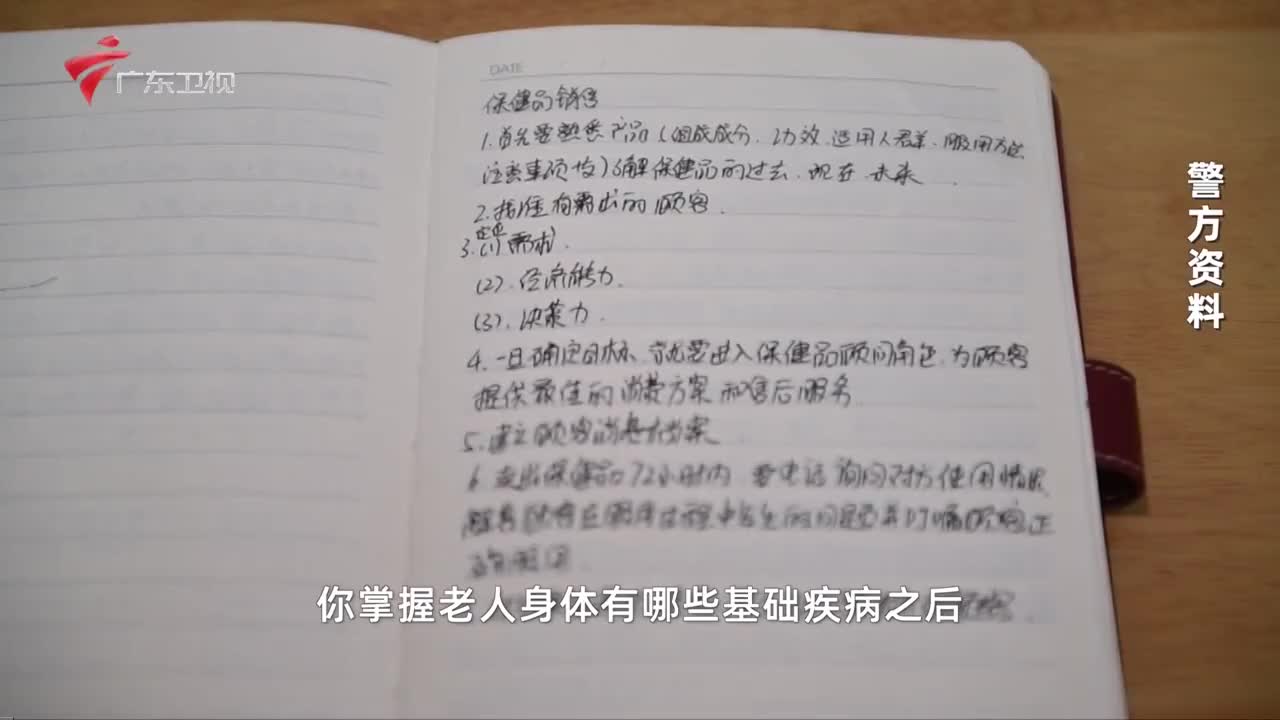 广东卫视
DATE
保健品销售
1.首先要熟悉产品(组成成分、功效、适用人群、服用方法
注意事项等)了解保健品的过去、现在、未来.
2.找准有需求的顾客.
3.(1)需求.
(2).经济能力.
(3).决策力.
4.一旦确定目标、就要进入保健品顾问角色,为顾客
提供最佳的消费方案和售后服务
5.建立顾客消费档案
6.卖出保健品72小时内,要电话询问对方使用情况
警方资料
你掌握老人身体有哪些基础疾病之后